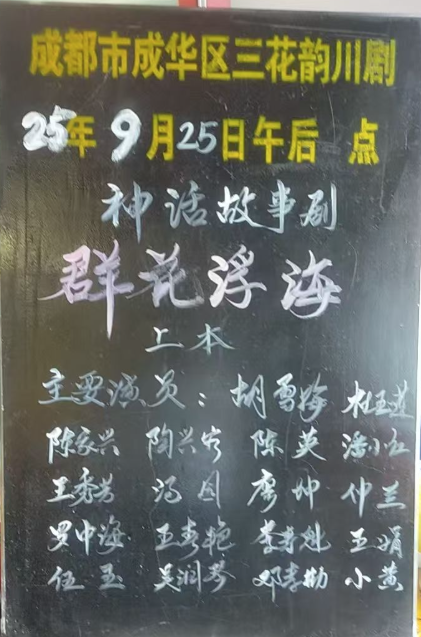 成都市成华区三花韵川剧
25年9月25日午后 点
神话故事剧
群花浮海
上本
主要演员：胡勇 杜玉进
陈家兴 陶兴 陈英 潘小红
王秀芳 冯国 廖坤 仲兰
罗中海 王秀艳 李 王娟
伍玉 吴润琴 邓孝 小黄